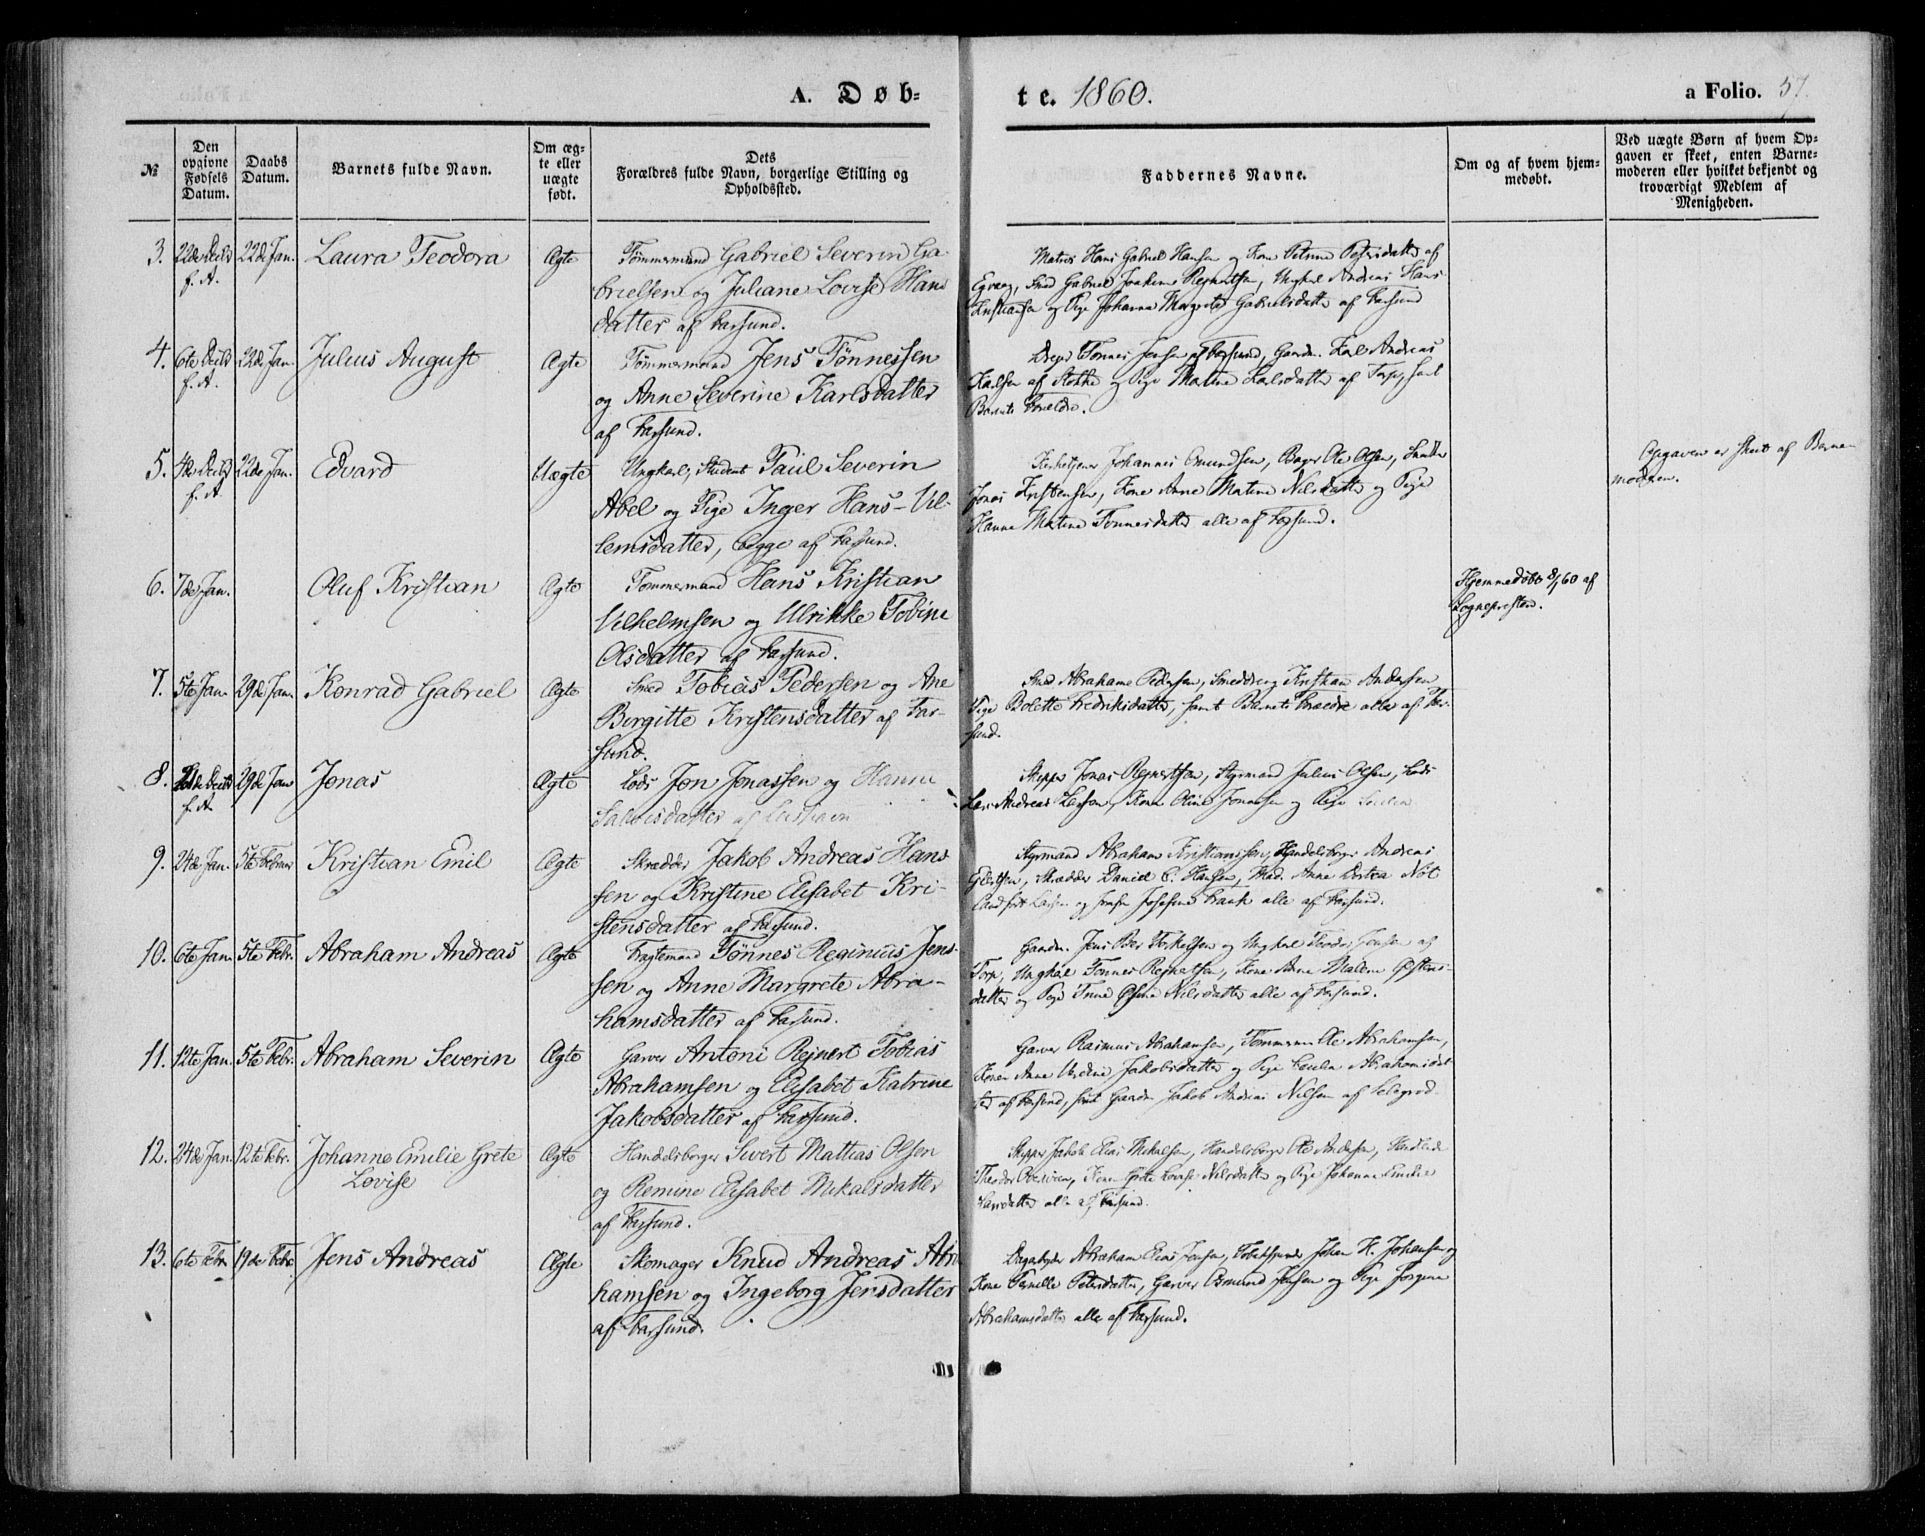 A. Døb-
te. 1860.
a Folio. 57.
№
Den opgivne Fødsels Datum.
Daabs Datum.
Barnets fulde Navn.
Om ægte eller uægte født.
Dets Forældres fulde Navn, borgerlige Stilling og Opholdssted.
Faddernes Navne.
Om og af hvem hjemmedøbt.
Ved uægte Børn af hvem Opgaven er skeet, enten Barnemoderen eller hvilket bekjendt og troværdigt Medlem af Menigheden.
3. 22de Decbr 22de Jan. Laura Teodora Ægte Tømmermand Gabriel Severin Ga-
f. A. brielsen og Juliane Lovise Hans
datter af Farsund.
Matros Hans Gabriel Hansen og Kone Petrine Petersdatter af
Egvaag, Smed Gabriel Joakim Reinertsen, Ungkarl Andreas Hans
Kristiansen og Pige Johanna Margrete Gabrielsdatter af Farsund
4. 6te Decbr 22de Jan. Julius August Ægte Tømmermand Jens Tønnessen
f. A. og Anne Severine Karlsdatter
af Farsund.
Tønnes Jensen af Farsund, Gaardm. Karl Andreas
Karlsen af og Pige Martine Karlsdatter af Torp, samt
Barnets Forældre.
5. 4de Decbr 22de Jan. Edvard Uægte Ungkarl, Student Paul Severin
f. A. Abel og Pige Inger Hans-Vil-
lemsdatter, begge af Farsund.
Kirketjener Johannes Omundsen, Bager Ole Olsen,
Jonas Kristensen, Kone Anne Martine Nilsdatter og Pige
Hanne Martine Tønnesdatter alle af Farsund.
Opgaven er skeet af Barne-
moderen.
6. 7de Jan. Oluf Kristian Ægte Tømmermand Hans Kristian
Vilhelmsen og Ulrikke Tobine
Olsdatter af Farsund.
Hjemmedøbt 8/1 60 af
Sognepresten.
7. 5te Jan. 29de Jan. Konrad Gabriel Ægte Smed Tobias Pedersen og Ane
Birgitte Kristensdatter af Far-
sund.
Smed Abraham Pedersen, Smeddreng Kristian Andersen
Pige Bolette Fredriksdatter, samt Barnets Forældre alle af Far-
sund.
8. 21de Decbr 29de Jan Jonas Ægte Lods Jon Jonassen og Hanne
f. A. Salvesdatter af
Skipper Jonas Reinertsen, Styrmand Julius Olsen, Lods
Andreas Larsen, Kone Oline Jonassen og Pige
9. 24de Jan. 5te Februar Kristian Emil Ægte Skrædder Jakob Andreas Han-
sen og Kristine Elisabet Kri-
stensdatter af Farsund.
Styrmand Abraham Kristiansen, Handelsborger Andreas
Skrædder Daniel C. Hansen, Mad. Anne
og Josefine alle af Farsund.
10. 6te Jan. 5te Febr. Abraham Andreas Ægte Fragtemand Tønnes Reginius Jens-
sen og Anne Margrete Abra-
hamsdatter af Farsund.
Gaardm. Jens Torkelsen og Ungkarl Jensen af
Torp, Ungkarl Tønnes Reinertsen, Kone Anne Malene
datter og Pige Nilsdatter alle af Farsund.
11. 12te Jan. 5te Febr. Abraham Severin Ægte Garver Antoni Rejnert Tobias
Abrahamsen og Elisabet Katrine
Jakobsdatter af Farsund.
Garver Rasmus Abrahamsen, Tømmerm. Ole Abrahamsen,
Konen Anne Jakobsdatter og Pige Abrahamsdat
ter af Farsund, samt Gaardm. Jakob Andreas Nilsen af
12. 24de Jan. 12te Febr. Johanne Emilie Grete Ægte Handelsborger Sivert Mattias Olsen
Lovise og Remine Elisabet Mikalsdatter
af Farsund.
Skipper Jakob Elias Mikalsen, Handelsborger Ole Andersen,
Kone Grete Lovise Nilsdatter og Pige Johanne Emilie
alle af Farsund.
13. 6te Febr. 19de Febr. Jens Andreas Ægte Skomager Knud Andreas Abra
hamsen og Ingeborg Jensdatter
af Farsund.
Abraham Elias Jensen, Johan H. Johansen og
Kone Pernille Petersdatter, Garver Omund Jensen og Pige Jørgine
Abrahamsdatter alle af Farsund.